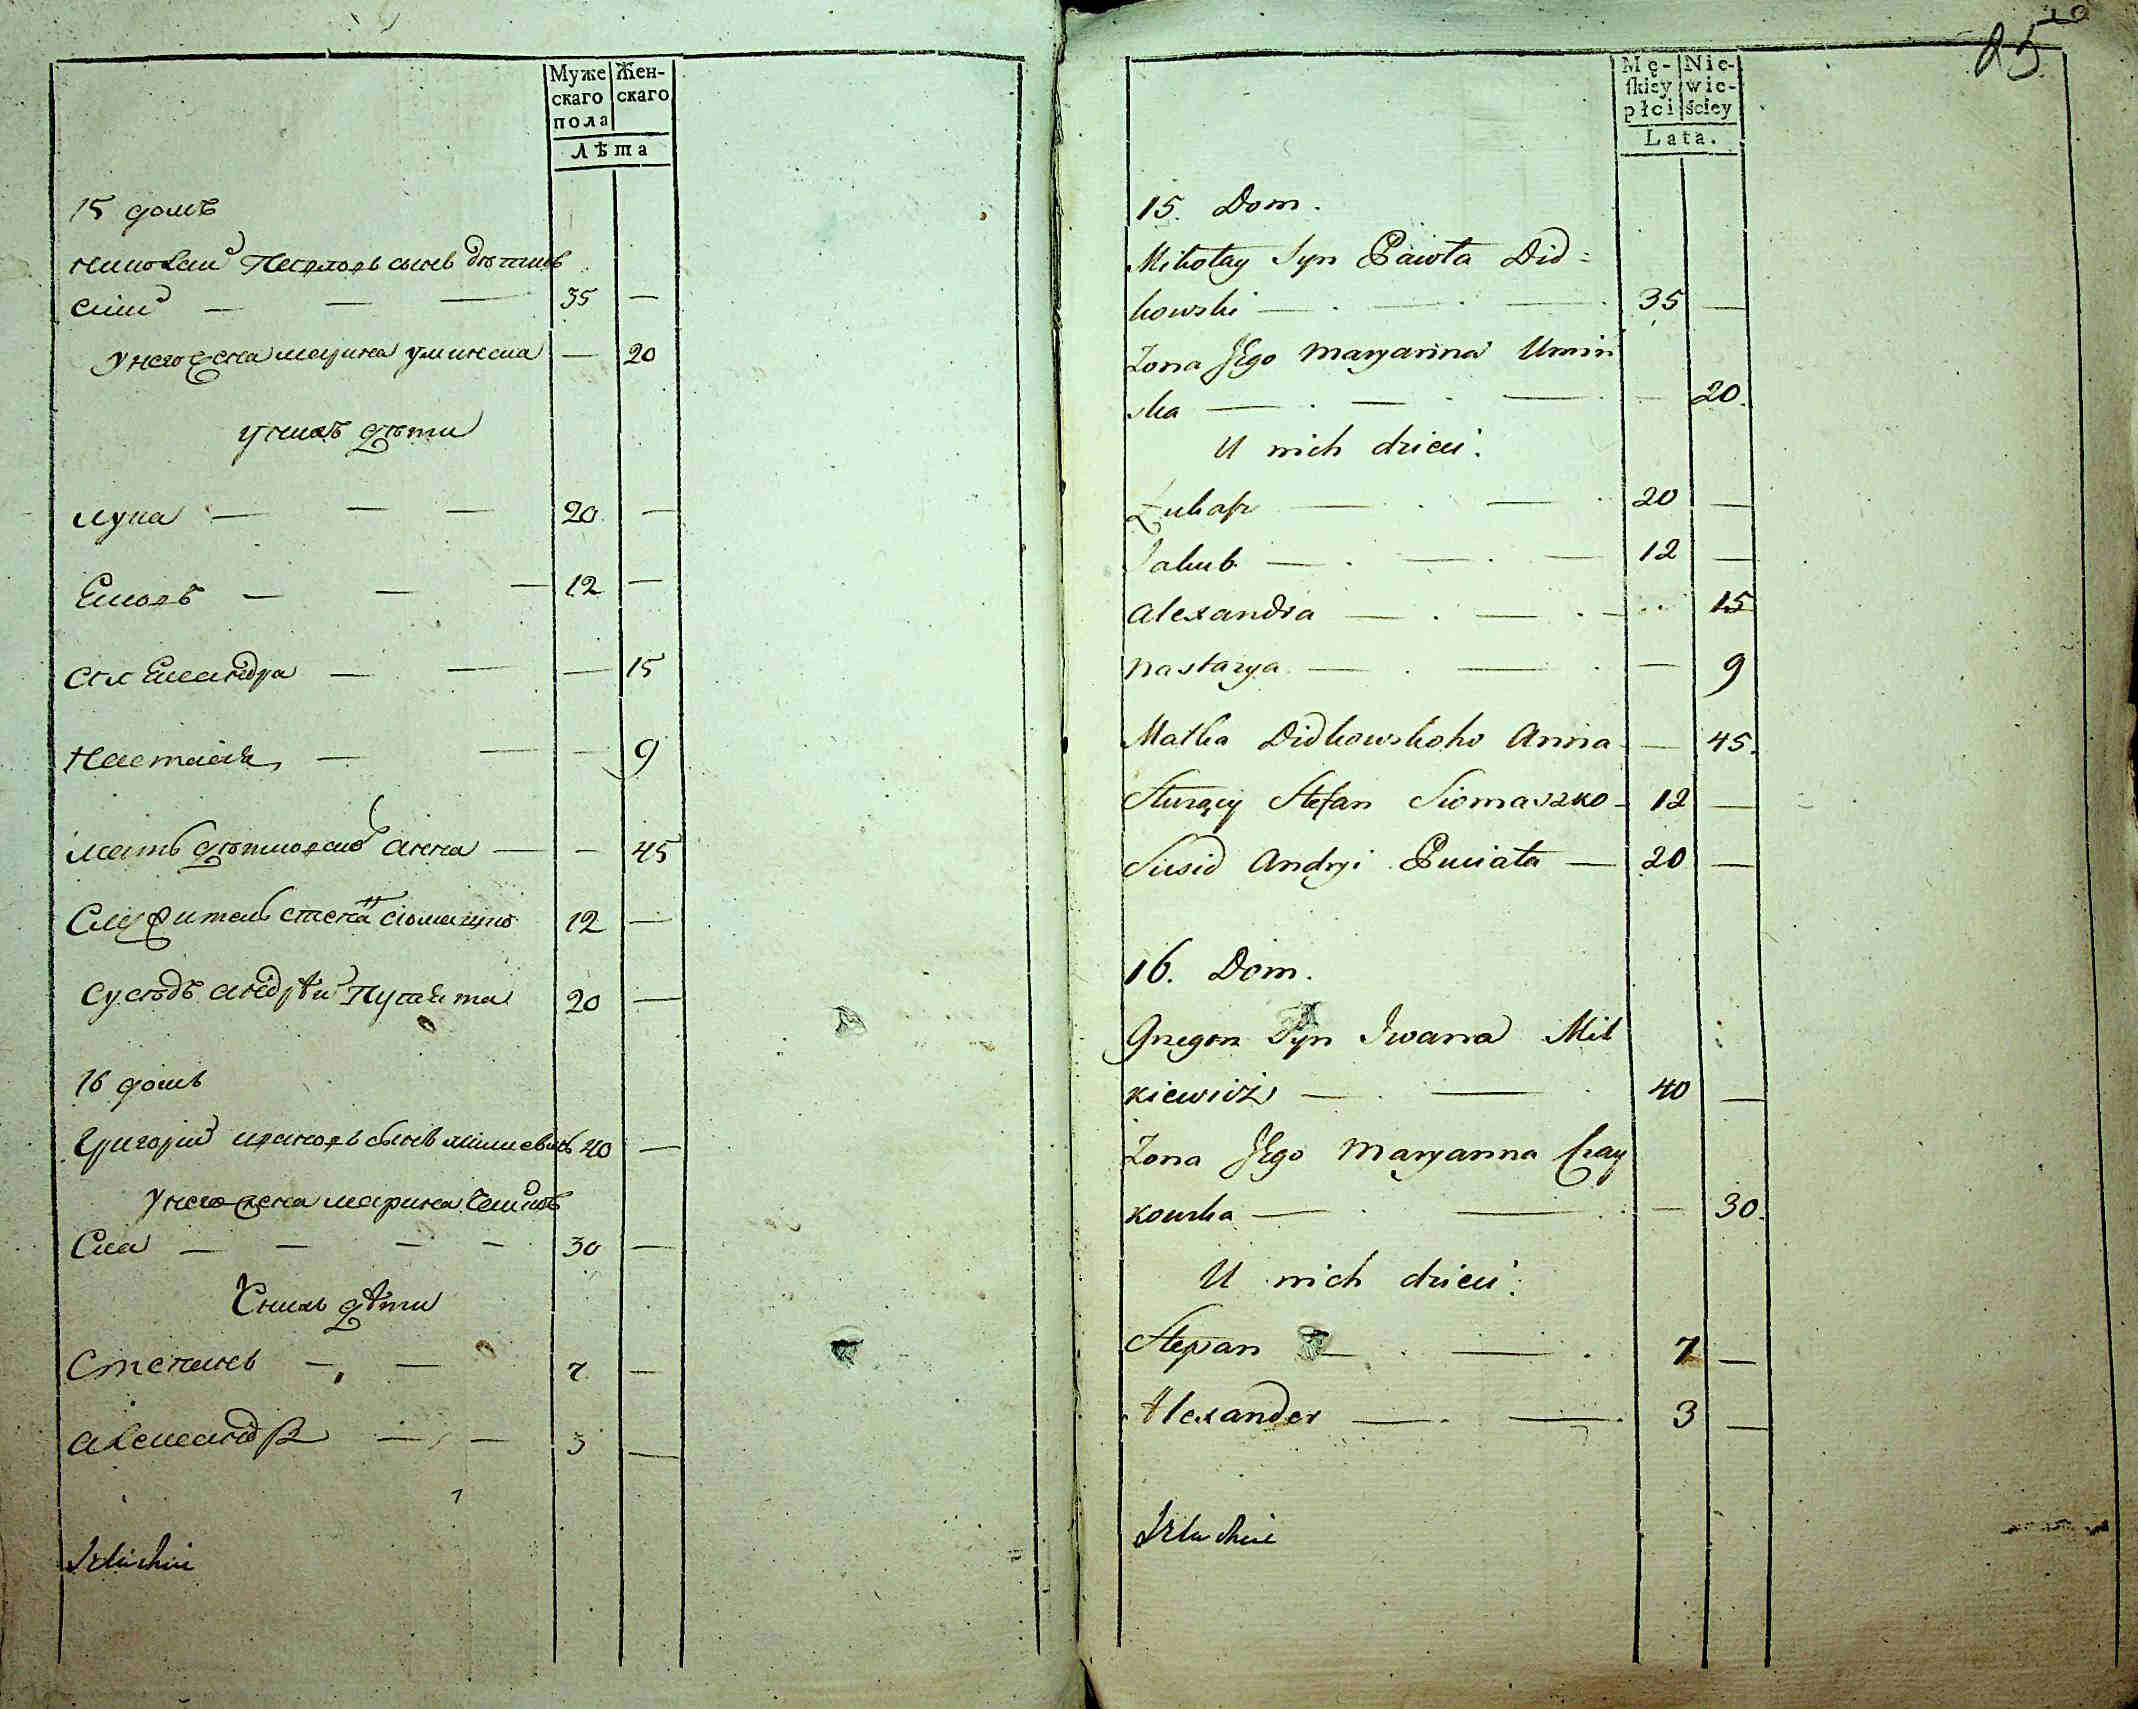 Муже
скаго
пола
Жен-
скаго
Лѣта
15 домъ
николай Павловъ сынъ дѣтков
скій — — — 35 —
У него жена марина уминска — 20
у нихъ дѣти
лука — — — 20 —
Яковъ — — — 12 —
алеѯандра — — — 15
Настасія — — — 9
мать дѣтковскаго анна — — 45
Служитель степан сіомашко 12 —
Сусѣдъ андрѣй Пуціята 20 —
16 домъ
Григорій ивановъ сынъ милкевичъ 40 —
У него жена марина Чайков
Ска — — — — 30 —
У нихъ дѣти
Степанъ — — 7 —
александръ — — 3 —
85
Mę-
skiey
płci
Nie-
wie-
ściey
Lata.
15. Dom.
Mikołay Syn Pawła Did=
kowski — — — 35 —
Zona Jego Maryanna Umin
ska — — — — 20.
U nich dzieci.
Łukasz — — 20 —
Jakub — — — 12 —
Alexandra — — — 15
Nastazya — — — 9
Matka Didkowskoho Anna — 45.
Słuzący Stefan Siomaszko — 12 —
Susid Andryi Puciata — 20 —
16. Dom.
Grzegorz Syn Iwana Mil
kiewicz — — 40 —
Zona Jego Maryanna Czay
kowska — — — 30.
U nich dzieci:
Stepan — — 7 —
Alexander — — 3 —